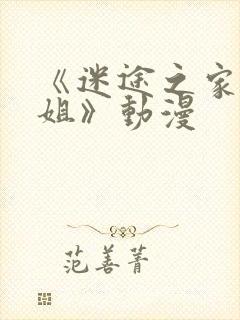 《迷途之家
姐》動漫
范善菁